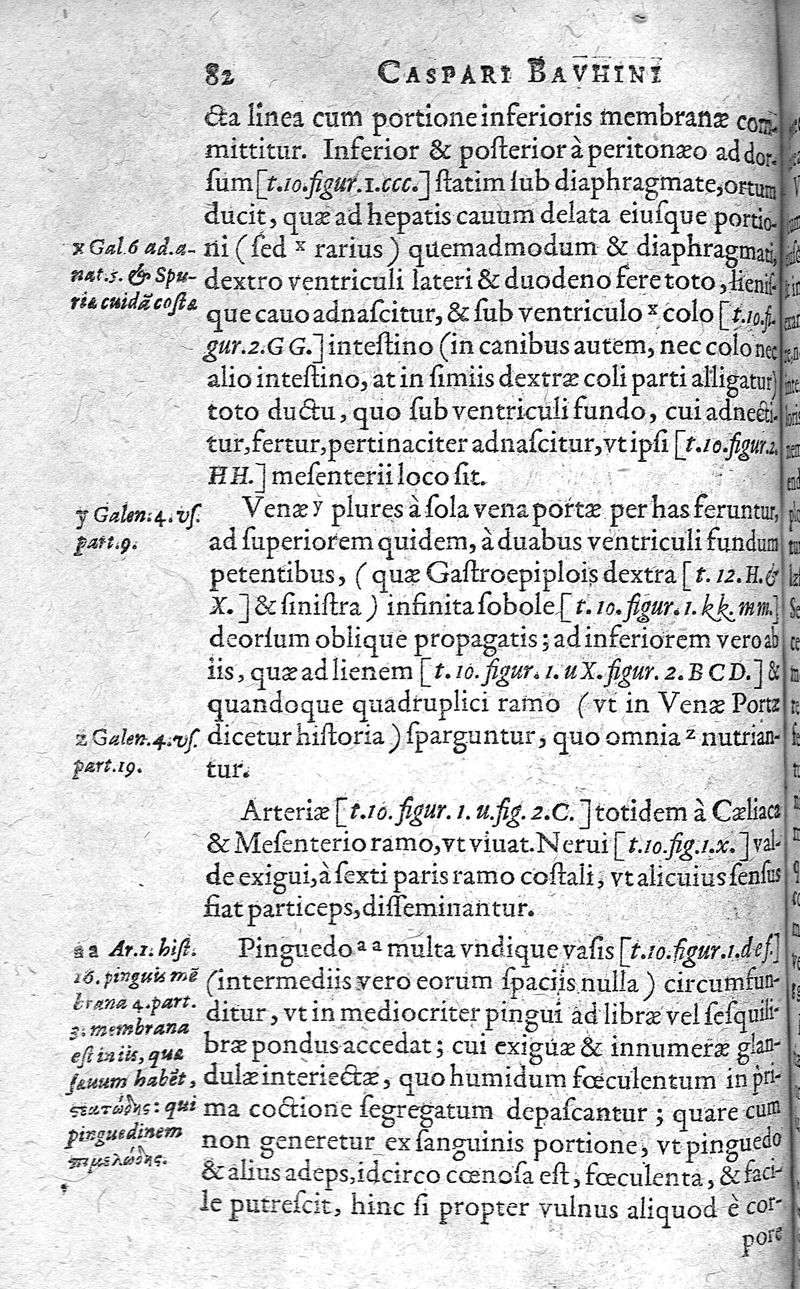 82 CASPARI BAVHINI
cta linea cum portione inferioris membranæ com-
mittitur. Inferior & posterior à peritonæo ad dor-
sum [t.10.figur.1.ccc.] statim sub diaphragmate, ortum
ducit, quæ ad hepatis cauum delata eiusque portio-
ni (sed x rarius) quemadmodum & diaphragmati,
dextro ventriculi lateri & duodeno fere toto, lienis-
que cauo adnascitur, & sub ventriculo x colo [t.10.fi-
gur.2.GG.] intestino (in canibus autem, nec colo nec
alio intestino, at in simiis dextræ coli parti alligatur)
toto ductu, quo sub ventriculi fundo, cui adnecti-
tur, fertur, pertinaciter adnascitur, vt ipsi [t.10.figur.2.
HH.] mesenterii loco sit.
x Gal.6 ad.a-
nat.5. & Spu-
riæ cuidã costæ
Venæ y plures à sola vena portæ per has feruntur,
ad superiorem quidem, à duabus ventriculi fundum
petentibus, (quæ Gastroepiplois dextra [t. 12. H. &
X.] & sinistra) infinita sobole [t. 10. figur. 1. kk. mm.]
deorsum oblique propagatis; ad inferiorem vero ab
iis, quæ ad lienem [t. 10. figur. 1. u X. figur. 2. B C D.] &
quandoque quadruplici ramo (vt in Venæ Portæ
dicetur historia) sparguntur, quo omnia z nutrian-
tur.
y Galen.4.vs.
part.9.
z Galen.4.vs.
part.19.
Arteriæ [t.10.figur. 1. u.fig. 2.C.] totidem à Cæliaca
& Mesenterio ramo, vt viuat. Nerui [t.10.fig.1.x.] val-
de exigui, à sexti paris ramo costali, vt alicuius sensus
fiat particeps, disseminantur.
Pinguedo a a multa vndique vasis [t.10.figur.1.def.]
(intermediis vero eorum spaciis nulla) circumfun-
ditur, vt in mediocriter pingui ad libræ vel sesquili-
bræ pondus accedat; cui exiguæ & innumeræ glan-
dulæ interiectæ, quo humidum fœculentum in pri-
ma coctione segregatum depascantur; quare cum
non generetur ex sanguinis portione, vt pinguedo
& alius adeps, idcirco cœnosa est, fœculenta, & faci-
le putrescit, hinc si propter vulnus aliquod è cor-
pore
a a Ar.1. hist.
16. pinguis mẽ
brana 4.part.
3. membrana
est in iis, quæ
seuum habẽt,
στεατώδης: qui
pinguedinem
πιμελώδης.